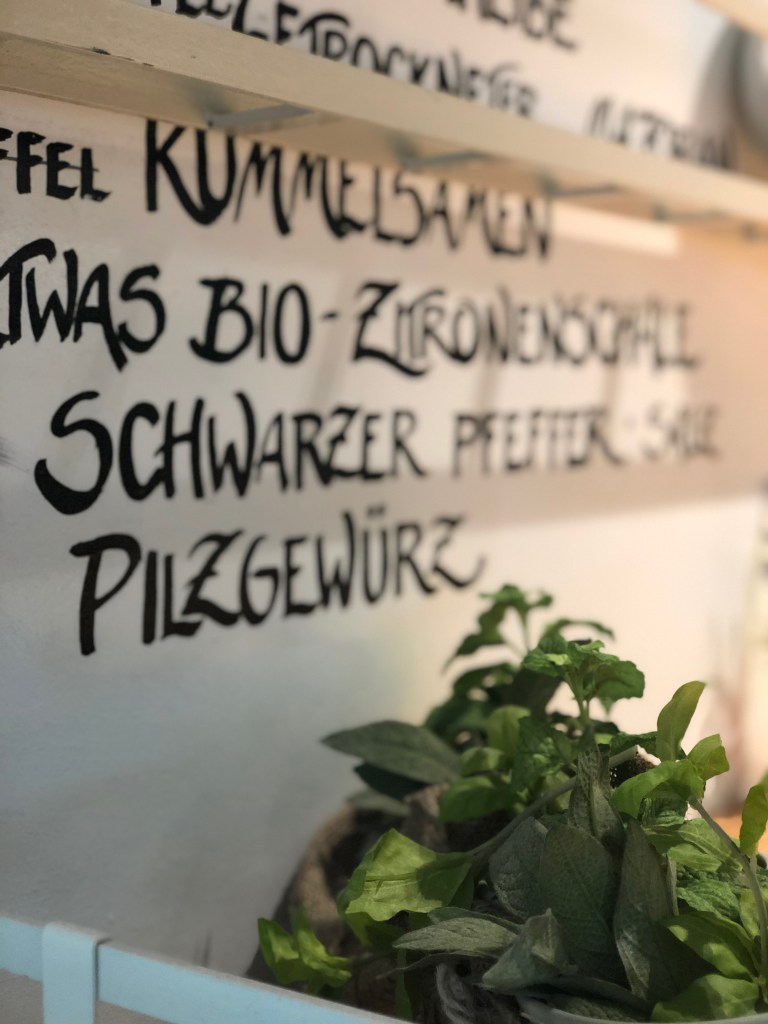 FFEL KÜMMELSAMEN
ETWAS BIO-ZITRONENSCHALE
SCHWARZER PFEFFER - SALZ
PILZGEWÜRZ